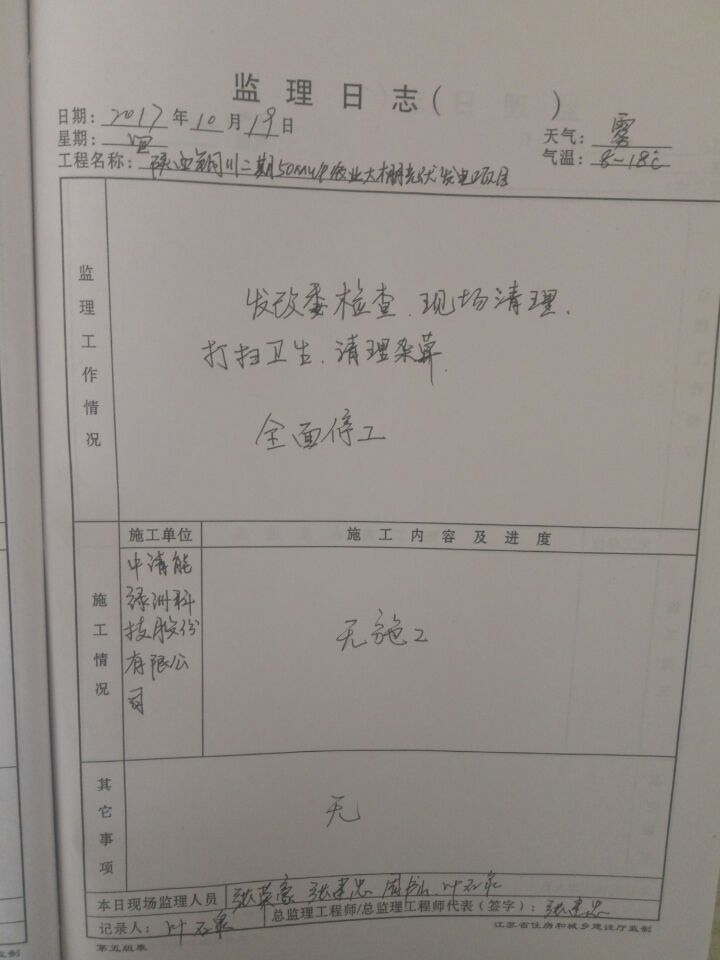 监理日志(    )
日期: 2017 年 10 月 19 日
星期: 四
天气: 雾
工程名称: 陕西铜川二期50MW农业大棚光伏发电项目
气温: 8-18℃
监理工作情况
发改委检查.现场清理.
打扫卫生.清理杂草.
全面停工
施工情况
施工单位
施工内容及进度
中清能
绿洲科
技股份
有限公
司
无施工
其它事项
无
本日现场监理人员 张英豪 张建忠 叶石泉
总监理工程师/总监理工程师代表(签字): 张建忠
记录人: 叶石泉
江苏省住房和城乡建设厅监制
第五版表